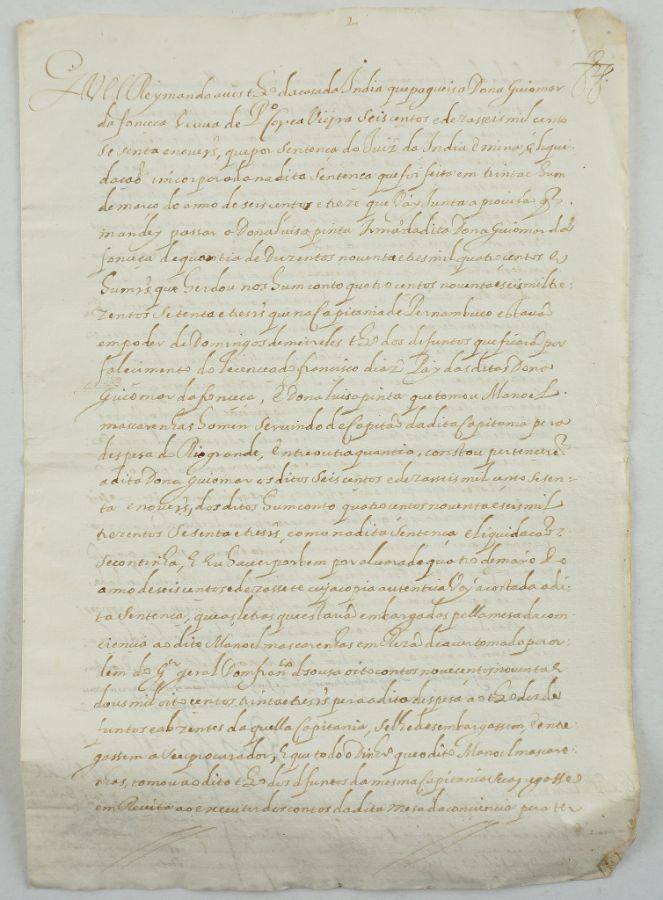 2
EU El Rey mando a vos thz.º da casa da India que pagueis a Dona Guiomar
da fonceca viuva de P.º Correa Vieyra seis centos e dezasseis mil cento
sesenta e nove rs, que por sentença do Juiz da India e mina, e liqui-
dação incorporada na dita sentença que foi feita em trinta e hum
de março do anno de seis centos e treze que vay junta a provisão q
mandey passar a Dona luisa pinta Irmã da dita Dona Guiomar da
fonceca de quantia de duzentos noventa e tres mil quatrocentos e
hum rs que herdou nos hum conto quatrocentos noventa e seis mil tre-
zentos setenta e tres rs que na Capitania de Pernambuco estavão
em poder de Domingos de meireles thz.º dos defuntos que ficarão por
falecimento do lecenceado francisco diaz Pay das ditas Dona
Guiomar da fonceca, e Dona luisa pinta que tomou Manoel
mascarenhas homem servindo de Capitão da dita Capitania pera
despesa do Rio grande, entre outra quantia, constou pertencerē
a dita Dona Guiomar os ditos seis centos e dezasseis mil cento sesen-
ta e nove rs, dos ditos hum conto quatrocentos noventa e seis mil
trezentos sesenta e tres rs, como na dita sentença e liquidação
se continha, E Eu haver por bem por alvara de quatro de março do
anno de seis centos e dezassete cuja copia autentica vay acostada a di-
ta sentença, que as letras que estavão embargadas pella mesa da con-
ciencia ao dito Manoel mascarenhas em de aver tomado por or-
dem do G.or geral Dom fran.co de sousa oito contos novecentos noventa e
dous mil oito centos trinta e tres rs pera a dita despesa ao thz.º dos de-
funtos e abzentes da quella Capitania, se lhe desembargassem e entre-
gassem a seu procurador, e que todo o dinr.º que o dito Manoel mascare-
nhas, tomou ao dito thz.º dos defuntos da mesma Capitania se carregasse
em Receita ao executor dos contos da dita mesa da conciencia pera ter